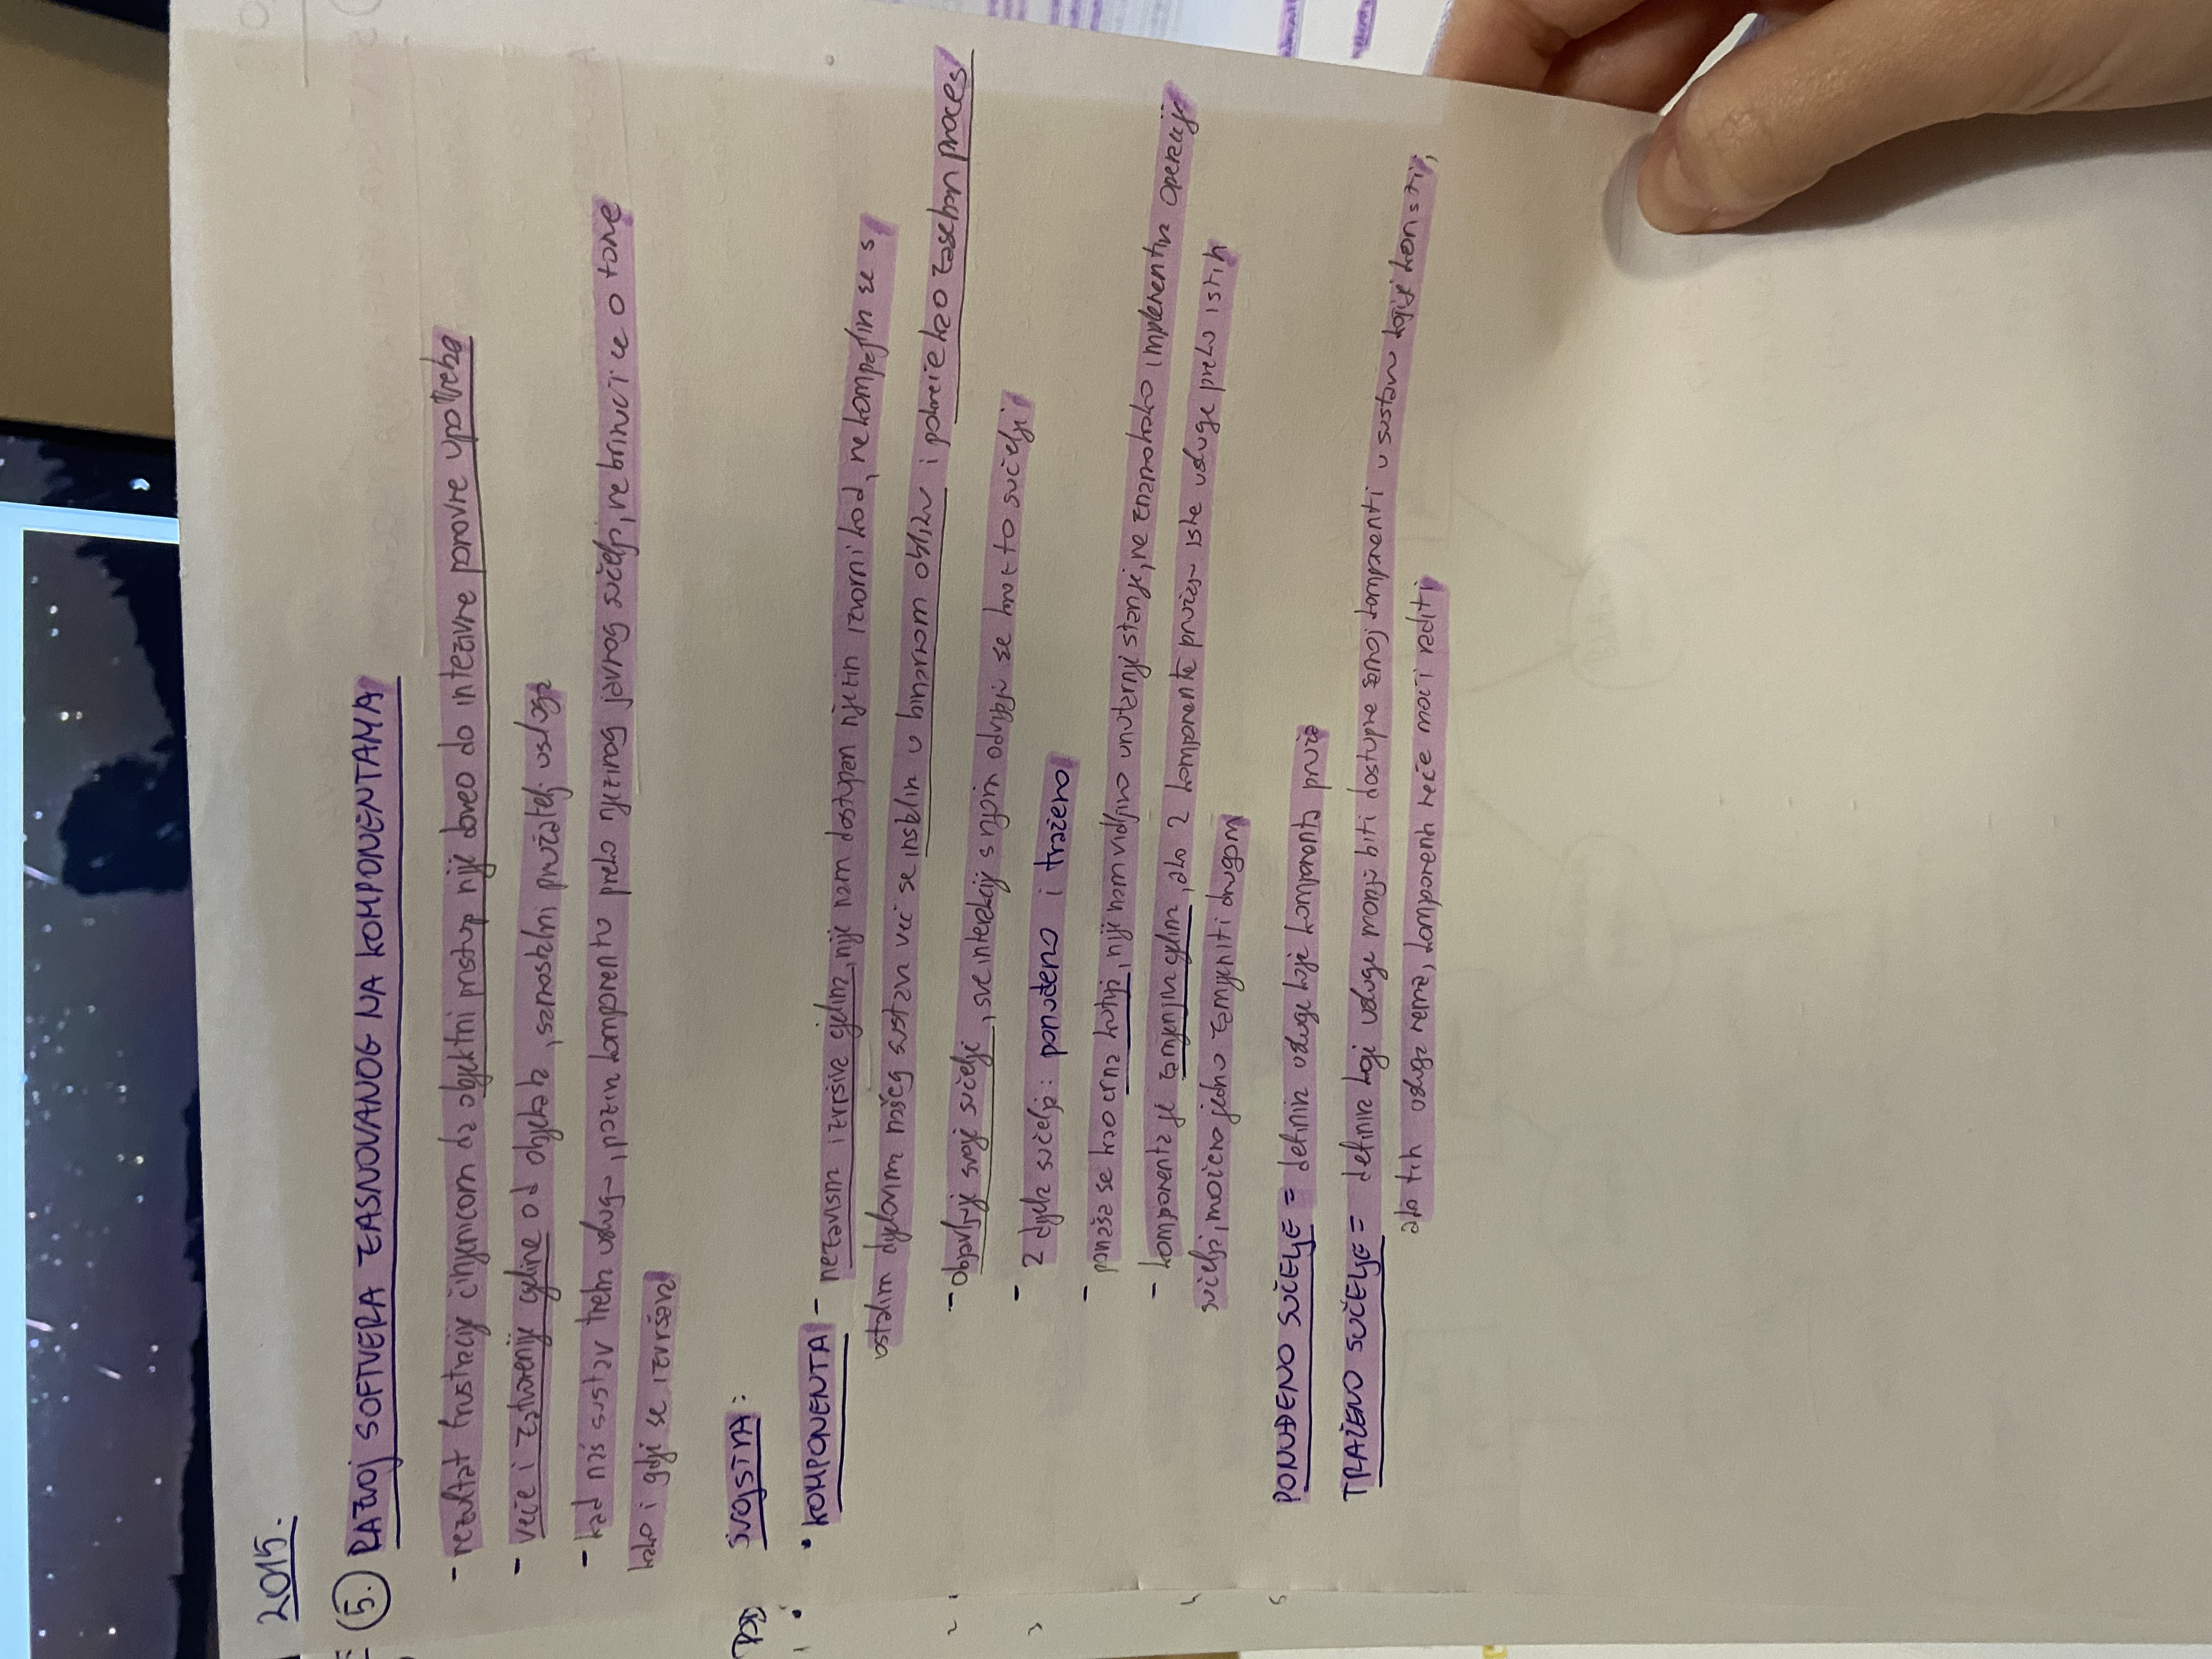 2015.
5. RAZVOJ SOFTVERA ZASNOVANOG NA KOMPONENTAMA
- rezultat frustracije činjenicom da objektni pristup nije doveo do intezivne ponovne upotrebe
- veće i zatvorenije cjeline od objekata, samostalni pružatelj usluga
- kad naš sustav treba uslugu, poziva komponentu preko njezinog javnog sučelja, ne brinući se o tome
kako i gdje se izvršava
POD
SVOJSTVA:
1 •
• KOMPONENTA - nezavisna izvršiva cjelina, nije nam dostupan njezin izvorni kod, ne kompajlira se s
ostalim dijelovima našeg sustava već se instalira u binarnom obliku i pokreće kao zaseban proces
2
- objavljuje svoje sučelje, sve interakcije s njom odvijaju se kroz to sučelje
3
- 2 dijela sučelja: ponuđeno i traženo
- ponaša se kao crna kutija, nije nam vidljivo unutarnje stanje, ne znamo kako implementira operacije
4
- komponenta je zamjenjiva cjelina, ako 2 komponente pružaju iste usluge preko istih
sučelja, možemo jednu zamjeniti drugom
5
PONUĐENO SUČELJE = definira usluge koje komponenta pruža
TRAŽENO SUČELJE = definira koje usluge moraju biti dostupne samoj komponenti u sustavu koji je koristi,
ako tih usluga nema, komponenta neće moći raditi